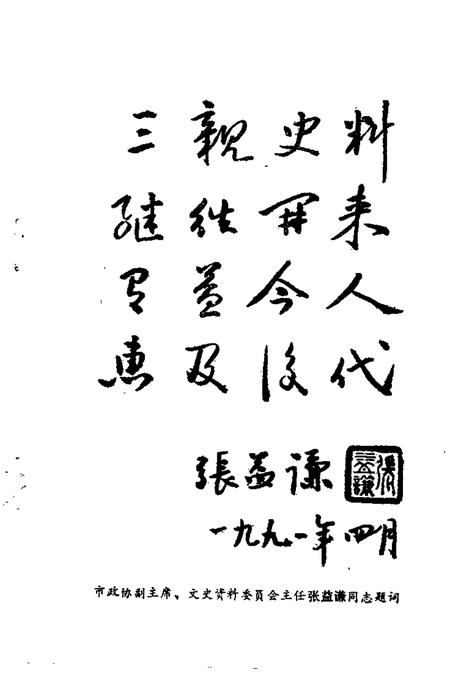 三亲史料
继往开来
有益今人
惠及後代
張益谦
張益謙
一九九一年四月
市政协副主席、文史资料委员会主任张益谦同志题词